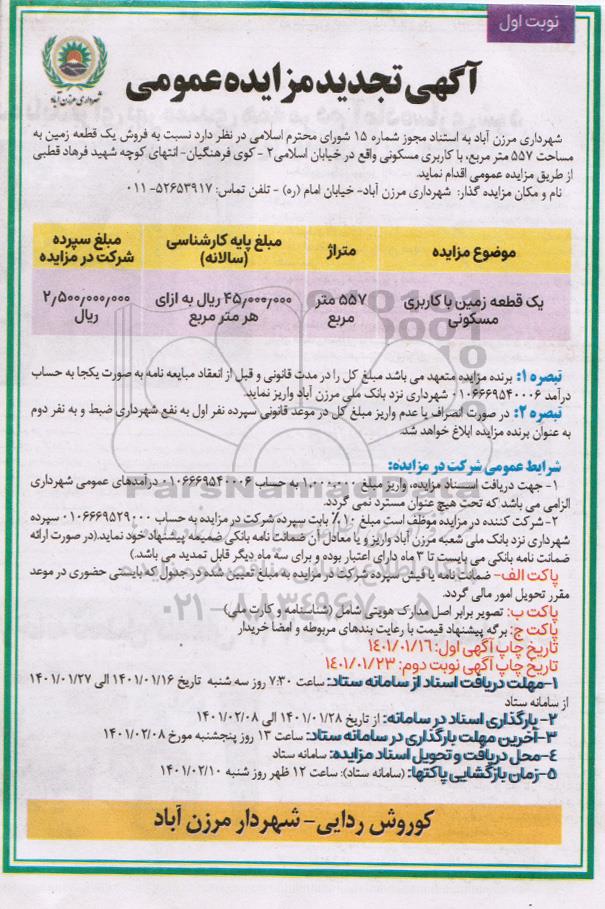 نوبت اول
شهرداری مرزن آباد
آگهی تجدید مزایده عمومی
شهرداری مرزن آباد به استناد مجوز شماره ۱۵ شورای محترم اسلامی در نظر دارد نسبت به فروش یک قطعه زمین به
مساحت ۵۵۷ متر مربع، با کاربری مسکونی واقع در خیابان اسلامی۲ - کوی فرهنگیان- انتهای کوچه شهید فرهاد قطبی
از طریق مزایده عمومی اقدام نماید.
نام و مکان مزایده گذار: شهرداری مرزن آباد- خیابان امام (ره) - تلفن تماس: ۵۲۶۵۳۹۱۷- ۰۱۱
موضوع مزایده متراژ مبلغ پایه کارشناسی (سالانه) مبلغ سپرده شرکت در مزایده
یک قطعه زمین با کاربری مسکونی ۵۵۷ متر مربع ۴۵٫۰۰۰٫۰۰۰ ریال به ازای هر متر مربع ۲٫۵۰۰٫۰۰۰٫۰۰۰ ریال
تبصره ۱: برنده مزایده متعهد می باشد مبلغ کل را در مدت قانونی و قبل از انعقاد مبایعه نامه به صورت یکجا به حساب
درآمد ۰۱۰۶۶۶۹۵۴۰۰۰۶ شهرداری نزد بانک ملی مرزن آباد واریز نماید.
تبصره ۲: در صورت انصراف یا عدم واریز مبلغ کل در موعد قانونی سپرده نفر اول به نفع شهرداری ضبط و به نفر دوم
به عنوان برنده مزایده ابلاغ خواهد شد.
شرایط عمومی شرکت در مزایده:
۱- جهت دریافت اسناد مزایده، واریز مبلغ ۱٫۰۰۰٫۰۰۰ به حساب ۰۱۰۶۶۶۹۵۴۰۰۰۶ درآمدهای عمومی شهرداری
الزامی می باشد که تحت هیچ عنوان مسترد نمی گردد.
۲- شرکت کننده در مزایده موظف است مبلغ ۱۰٪ بابت سپرده شرکت در مزایده به حساب ۰۱۰۶۶۶۹۵۲۹۰۰۰ سپرده
شهرداری نزد بانک ملی شعبه مرزن آباد واریز و یا معادل آن ضمانت نامه بانکی ضمیمه پیشنهاد خود نماید.(در صورت ارائه
ضمانت نامه بانکی می بایست تا ۳ ماه دارای اعتبار بوده و برای سه ماه دیگر قابل تمدید می باشد.)
پاکت الف- ضمانت نامه یا فیش سپرده شرکت در مزایده به مبلغ تعیین شده در جدول که بایستی حضوری در موعد
مقرر تحویل امور مالی گردد.
پاکت ب: تصویر برابر اصل مدارک هویتی شامل (شناسنامه و کارت ملی)
پاکت ج: برگه پیشنهاد قیمت با رعایت بندهای مربوطه و امضا خریدار
تاریخ چاپ آگهی اول: ۱۴۰۱/۰۱/۱۶
تاریخ چاپ آگهی نوبت دوم: ۱۴۰۱/۰۱/۲۳
۱-مهلت دریافت اسناد از سامانه ستاد: ساعت ۷:۳۰ روز سه شنبه تاریخ ۱۴۰۱/۰۱/۱۶ الی ۱۴۰۱/۰۱/۲۷
از سامانه ستاد
۲- بارگذاری اسناد در سامانه: از تاریخ ۱۴۰۱/۰۱/۲۸ الی ۱۴۰۱/۰۲/۰۸
۳-آخرین مهلت بارگذاری در سامانه ستاد: ساعت ۱۳ روز پنجشنبه مورخ ۱۴۰۱/۰۲/۰۸
۴-محل دریافت و تحویل اسناد مزایده: سامانه ستاد
۵-زمان بازگشایی پاکتها: (سامانه ستاد): ساعت ۱۲ ظهر روز شنبه ۱۴۰۱/۰۲/۱۰
کوروش ردایی- شهردار مرزن آباد
ParsNamadData
۰۲۱-۸۸۳۴۹۶۷۰-۵